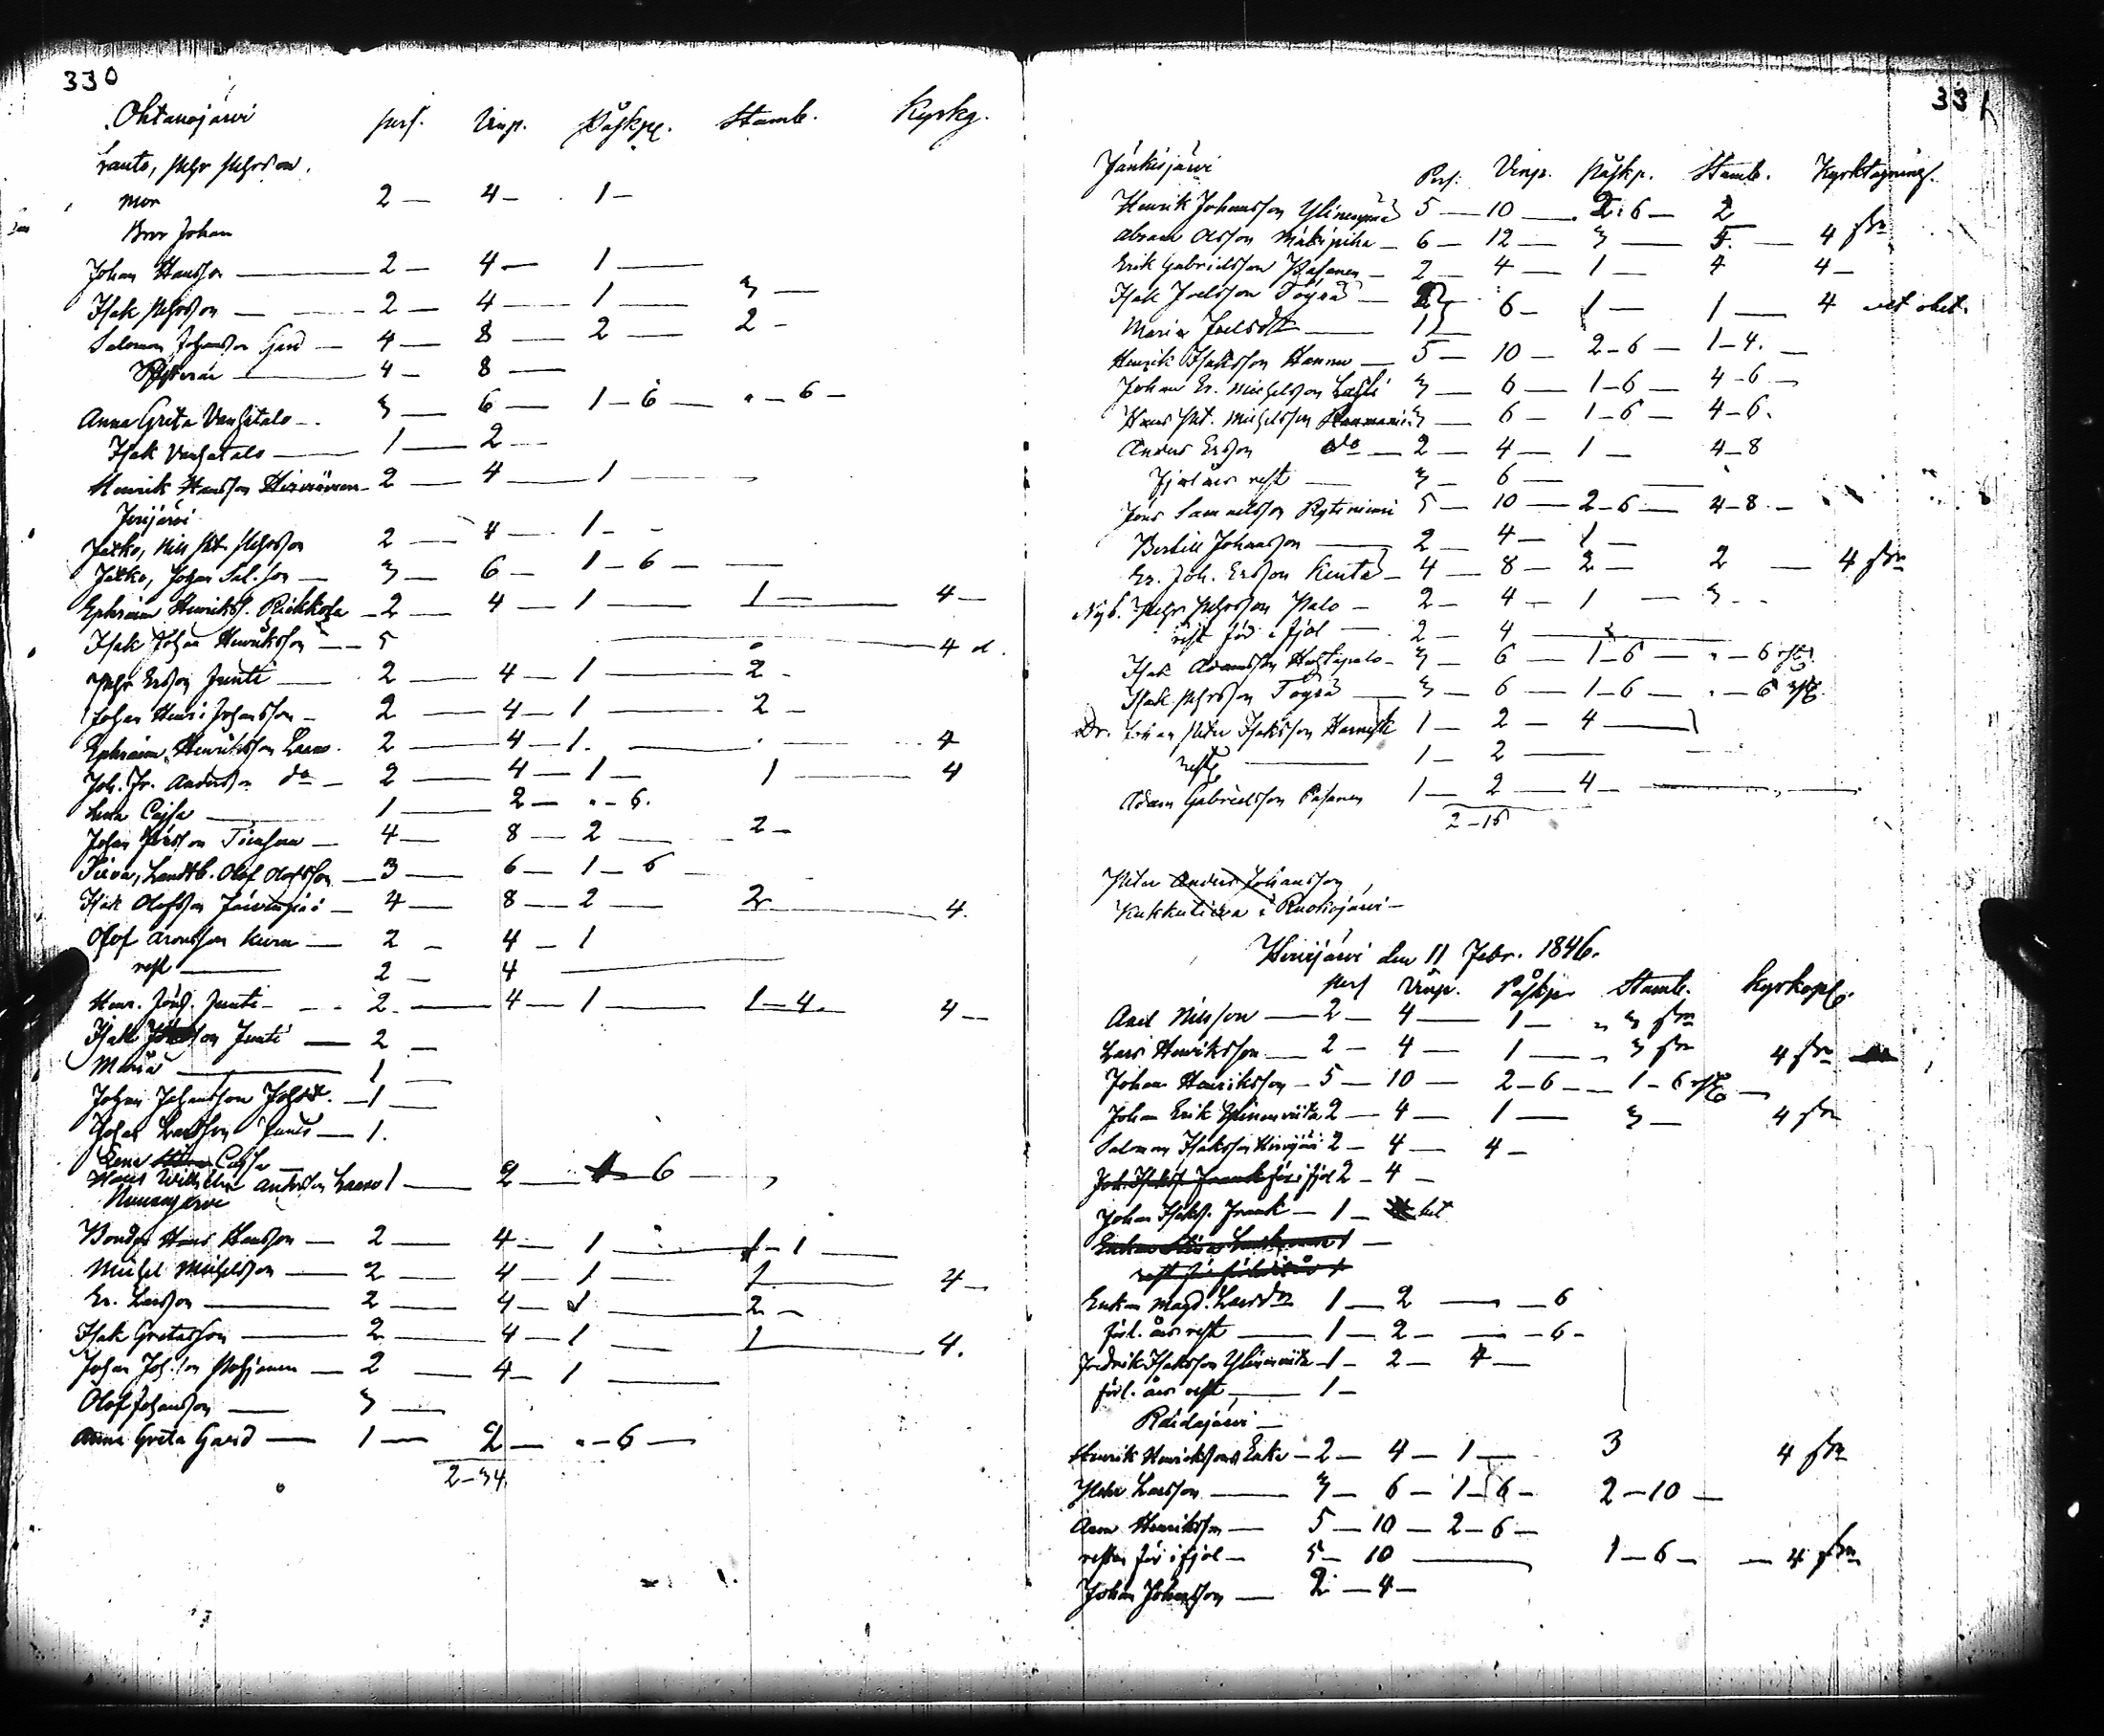 330
Ohtanajärvi pers. Vinp. Påskp. Stamb. Kyrkg.
Lauto, Pehr Pehrsson.
mor 2 — 4 — 1 —
Bror Johan
Johan Hansson — 2 — 4 — 1 —
Isak Pehrsson — 2 — 4 — 1 — 3 —
Salomon Johansson Gard — 4 — 8 — 2 — 2 —
4 — 8 —
Anna Greta Vanhatalo — 3 — 6 — 1 — 6 — " — 6 —
Isak Vanhatalo — 1 — 2 —
Henrik Hansson — 2 — 4 — 1 —
Jerijärvi
Jatko, Nils Pet. Pehrsson 2 — 4 — 1 —
Jatko, Johan Sal.son — 3 — 6 — 1 — 6 —
Ephraim Henrikss. Riekkola — 2 — 4 — 1 — 1 — 4 —
Isak Johan Henriksson — 5 — 4 d.
Pehr Ersson Junti — 2 — 4 — 1 — 2 —
Johan Henr: Johansson — 2 — 4 — 1 — 2 —
Ephraim Henriksson Laaso. 2 — 4 — 1. — 4
Joh. Fr. Andersson do — 2 — 4 — 1 — 1 — 4
Lena Cajsa — 1 — 2 — " — 6.
Johan — 4 — 8 — 2 — 2 —
Landtb. Olof Olofsson — 3 — 6 — 1 — 6
Isak Olofsson Järvenpää — 4 — 8 — 2 — 2 — 4.
Olof Aronsson — 2 — 4 — 1
rest — 2 — 4 —
Henr. Junti — 2 — 4 — 1 — 1 — 4. 4 —
Isak Junti — 2 —
Maria — 1 —
Johan Johansson — 1 —
Johan — 1.
Lena Cajsa —
Hans Wilhelm Andersson Laaso 1 — 2 — 6 —
Bonden Hans Hansson — 2 — 4 — 1 — 1 — 1 —
Michel Michelsson — 2 — 4 — 1 — 1 — 4 —
Er. Larsson — 2 — 4 — 1 — 2 —
Isak Gretasson — 2 — 4 — 1 — 1 — 4.
Johan Joh.son Pohjanen — 2 — 4 — 1 —
Olof Johansson — 3 —
Anna Greta Gard — 1 — 2 — " — 6 —
2 — 34.
331
Jänkisjärvi Pers. Vinp. Påskp. Stamb. Kyrktagning.
Henrik Johansson Ylinenpää 5 — 10 — 2. 6 — 2
Abram Olsson Mäkipiha — 6 — 12 — 3 — 5. — 4 skn
Erik Gabrielsson Pasanen — 2 — 4 — 1 — 4 4 —
Isak Joelsson Töyrä — 6 — 1 — 1 — 4
Maria Joelsdr — 1
Henrik Isaksson Hannu — 5 — 10 — 2 — 6 — 1 — 4. —
Johan Er. Michelsson 3 — 6 — 1 — 6 — 4 — 6 —
Hans Pet. Michelsson 3 — 6 — 1 — 6 — 4 — 6.
Anders Ersson do — 2 — 4 — 1 — 4 — 8
Fjol års rest — 3 — 6 —
Jöns Samuelsson Kytiniemi 5 — 10 — 2 — 6 — 4 — 8 —
Bertill Johansson — 2 — 4 — 1 —
Er. Joh. Ersson Kenta — 4 — 8 — 2 — 2 — 4 skn
Nyb. Pehr Pehrsson Palo — 2 — 4 — 1 — 3 —
rest för i fjol — 2 — 4 —
Isak Adamsson — 3 — 6 — 1 — 6 — " — 6
Isak Pehrsson Töyrä — 3 — 6 — 1 — 6 — " — 6
Dr. Johan Petter Isaksson 1 — 2 — 4 —
rest — 1 — 2 —
Adam Gabrielsson Pasanen 1 — 2 — 4 —
2 — 15
Petter Anders Johansson
i Ruokojärvi —
Hirvijärvi den 11 Febr. 1846.
pers Vinp. Påskp. Stamb. Kyrkopl.
Axel Nilsson — 2 — 4 — 1 — " 3 skn
Lars Henriksson — 2 — 4 — 1 — " 3 skn 4 skn
Johan Henriksson — 5 — 10 — 2 — 6 — 1 — 6
Johan Erik Ylinenviita 2 — 4 — 1 — 3 — 4 skn
Salomon Isaksson Hirvijärvi 2 — 4 — 4 —
Joh. Isakss. Frank för i fjol 2 — 4 —
Johan Isakss. Frank — 1 —
Enkan Magd. Larsdr 1 — 2 — — 6
förl. års rest — 1 — 2 — — 6 —
Fredrik Isaksson Ylinenviita — 1 — 2 — 4 —
förl. års rest — 1 —
Raidajärvi —
Henrik Henrikssons Enka — 2 — 4 — 1 — 3 4 skn
Pehr Larsson — 3 — 6 — 1 — 6 — 2 — 10 —
Aron Henriksson — 5 — 10 — 2 — 6 —
resten för i fjol — 5 — 10 — 1 — 6 — — 4 skn
Johan Johansson — 2 — 4 —